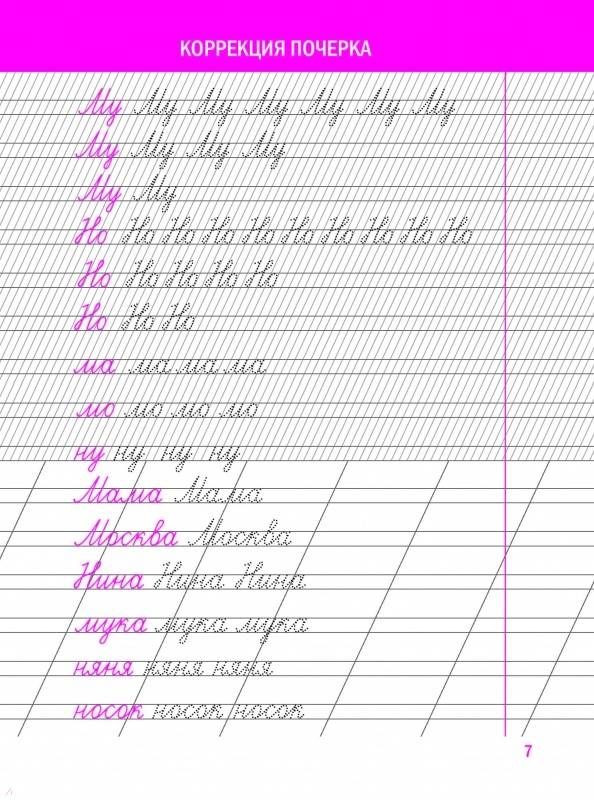 КОРРЕКЦИЯ ПОЧЕРКА
Му Му Му Му Му Му Му
Му Му Му Му
Му Му
Но Но Но Но Но Но Но Но Но Но
Но Но Но Но Но
Но Но Но
ма ма ма ма
мо мо мо мо
ну ну ну ну
Мама Мама
Москва Москва
Нина Нина Нина
мука мука мука
няня няня няня
носок носок носок
7